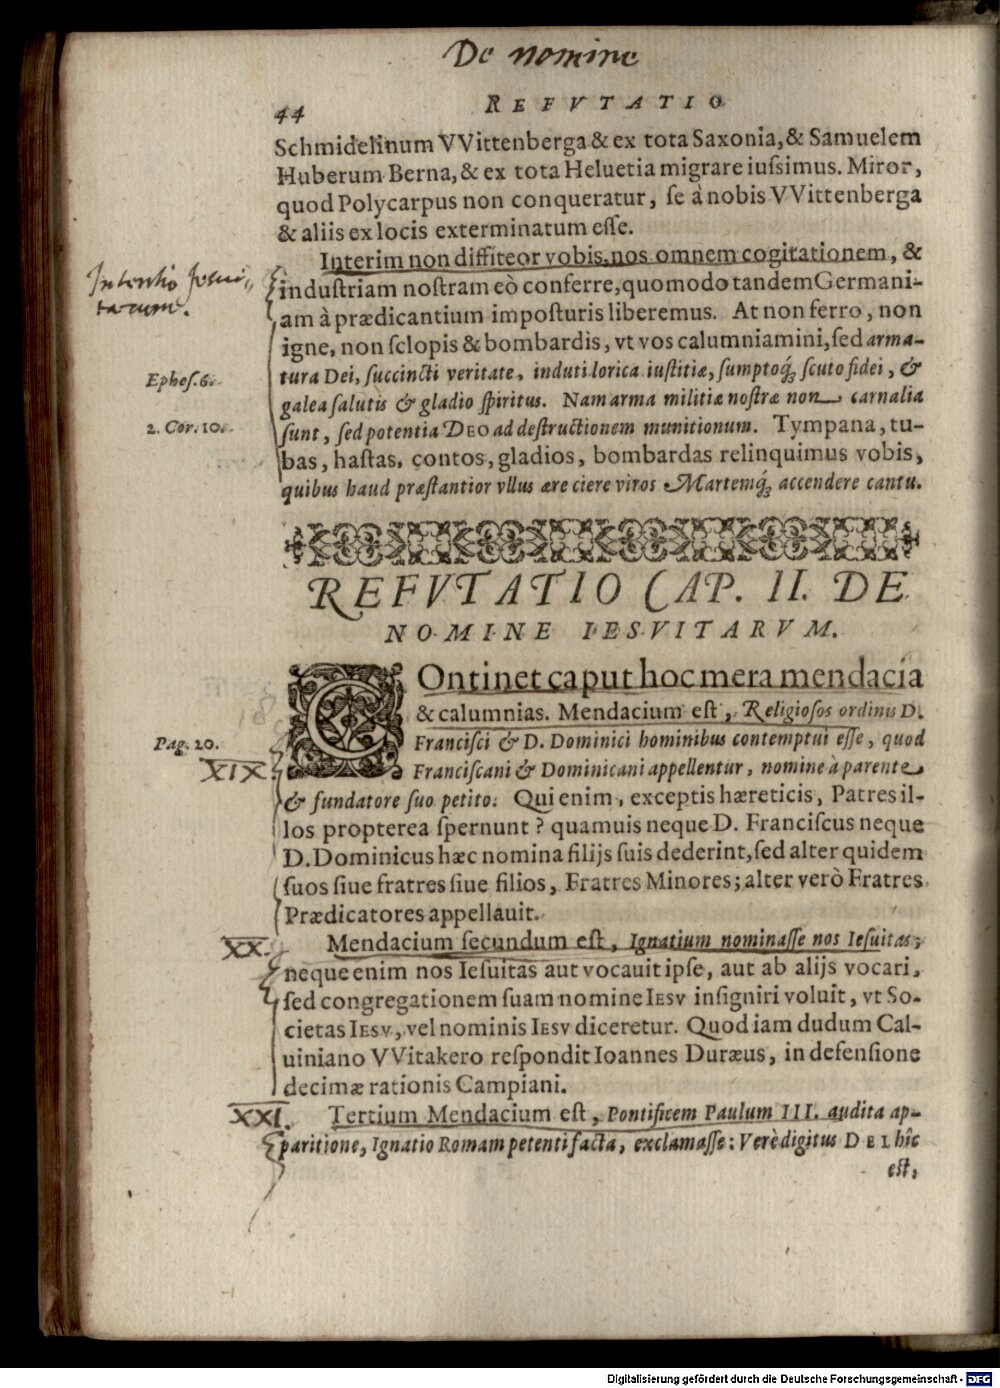 De nomine
44 REFVTATIO
Schmidelinum VVittenberga & ex tota Saxonia, & Samuelem
Huberum Berna, & ex tota Heluetia migrare iuſsimus. Miror,
quod Polycarpus non conqueratur, ſe à nobis VVittenberga
& aliis ex locis exterminatum eſſe.
Interim non diffiteor vobis, nos omnem cogitationem, &
Intentio Jesui„
tarum.
induſtriam noſtram eò conferre, quomodo tandem Germani-
am à prædicantium impoſturis liberemus. At non ferro, non
igne, non ſclopis & bombardis, vt vos calumniamini, ſed arma-
Epheſ. 6.
tura Dei, ſuccincti veritate, induti lorica iuſtitiæ, ſumptoq́; ſcuto fidei, &
galea ſalutis & gladio ſpiritus. Nam arma militiæ noſtræ non carnalia
2. Cor. 10.
ſunt, ſed potentia DEO ad deſtructionem munitionum. Tympana, tu-
bas, haſtas, contos, gladios, bombardas relinquimus vobis,
quibus haud præſtantior vllus ære ciere viros Martemq́; accendere cantu.
REFVTATIO CAP. II. DE
NOMINE IESVITARVM.
COntinet caput hoc mera mendacia
& calumnias. Mendacium eſt, Religioſos ordinis D.
Pag. 20.
Franciſci & D. Dominici hominibus contemptui eſſe, quod
XIX.
Franciſcani & Dominicani appellentur, nomine à parente
& fundatore ſuo petito: Qui enim, exceptis hæreticis, Patres il-
los propterea ſpernunt? quamuis neque D. Franciſcus neque
D. Dominicus hæc nomina filijs ſuis dederint, ſed alter quidem
ſuos ſiue fratres ſiue filios, Fratres Minores; alter verò Fratres
Prædicatores appellauit.
XX.
Mendacium ſecundum eſt, Ignatium nominaſſe nos Ieſuitas;
neque enim nos Ieſuitas aut vocauit ipſe, aut ab alijs vocari,
ſed congregationem ſuam nomine IESV inſigniri voluit, vt So-
cietas IESV, vel nominis IESV diceretur. Quod iam dudum Cal-
uiniano VVitakero reſpondit Ioannes Duræus, in defenſione
decimæ rationis Campiani.
XXI.
Tertium Mendacium eſt, Pontificem Paulum III. audita ap-
paritione, Ignatio Romam petenti facta, exclamaſſe: Verè digitus DEI hîc
eſt,
Digitalisierung gefördert durch die Deutsche Forschungsgemeinschaft - DFG